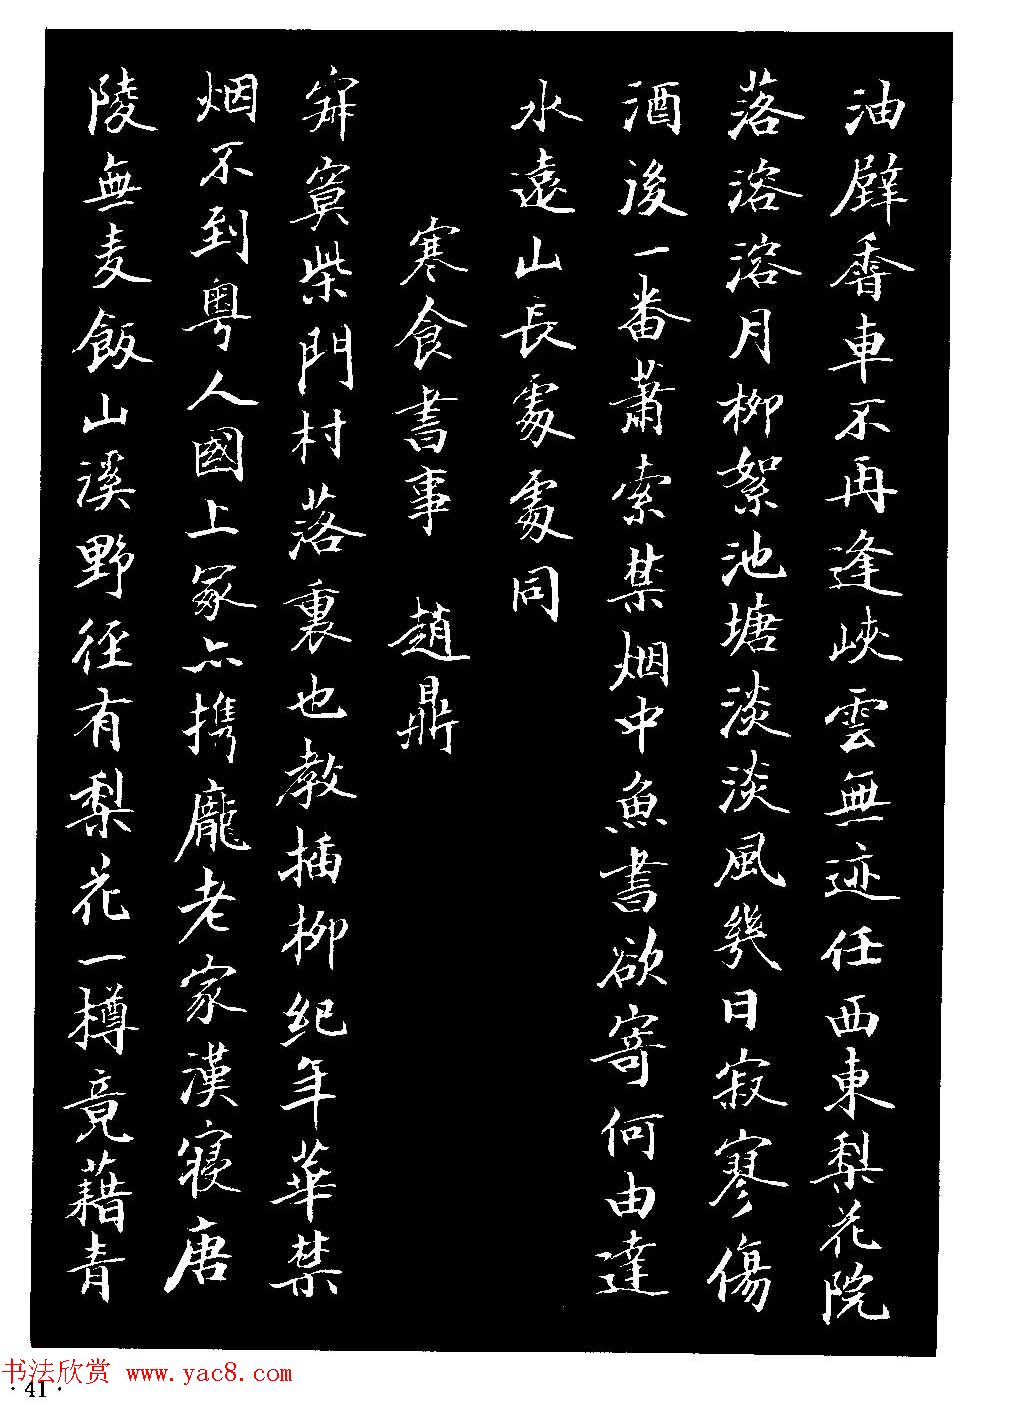 油壁香車不再逢峽雲無迹任西東梨花院
落溶溶月柳絮池塘淡淡風幾日寂寥傷
酒後一番蕭索禁烟中魚書欲寄何由達
水遠山長處處同
寒食書事 趙鼎
寂寞柴門村落裏也教插柳紀年華禁
烟不到粵人國上冢亦携龐老家漢寢唐
陵無麦飯山溪野徑有梨花一樽竟藉青
书法欣赏 www.yac8.com
·41·